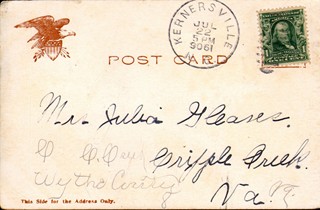 KERNERSVILLE
JUL
22
5 PM
1906
N.C.
POST CARD
Mr. Julia Gleaves.
Cripple Creek.
Wythe County
Va.
This Side for the Address Only.